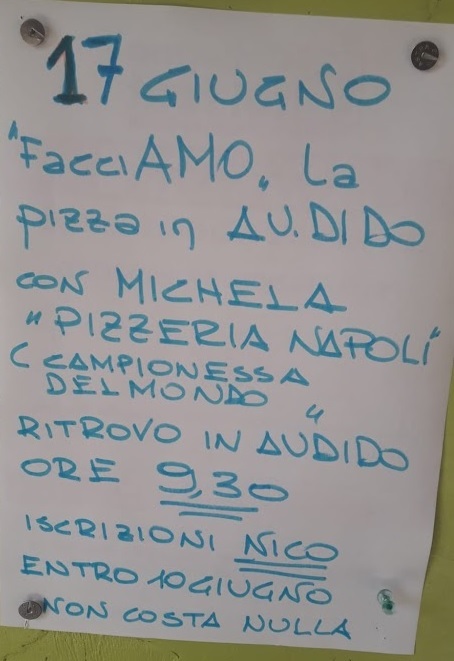 17 GIUGNO
"FacciAMO" La
pizza in AU.DIDO
CON MICHELA
"PIZZERIA NAPOLI"
( CAMPIONESSA
DEL MONDO "
RITROVO IN AUDIDO
ORE 9,30
ISCRIZIONI NICO
ENTRO 10 GIUGNO
NON COSTA NULLA